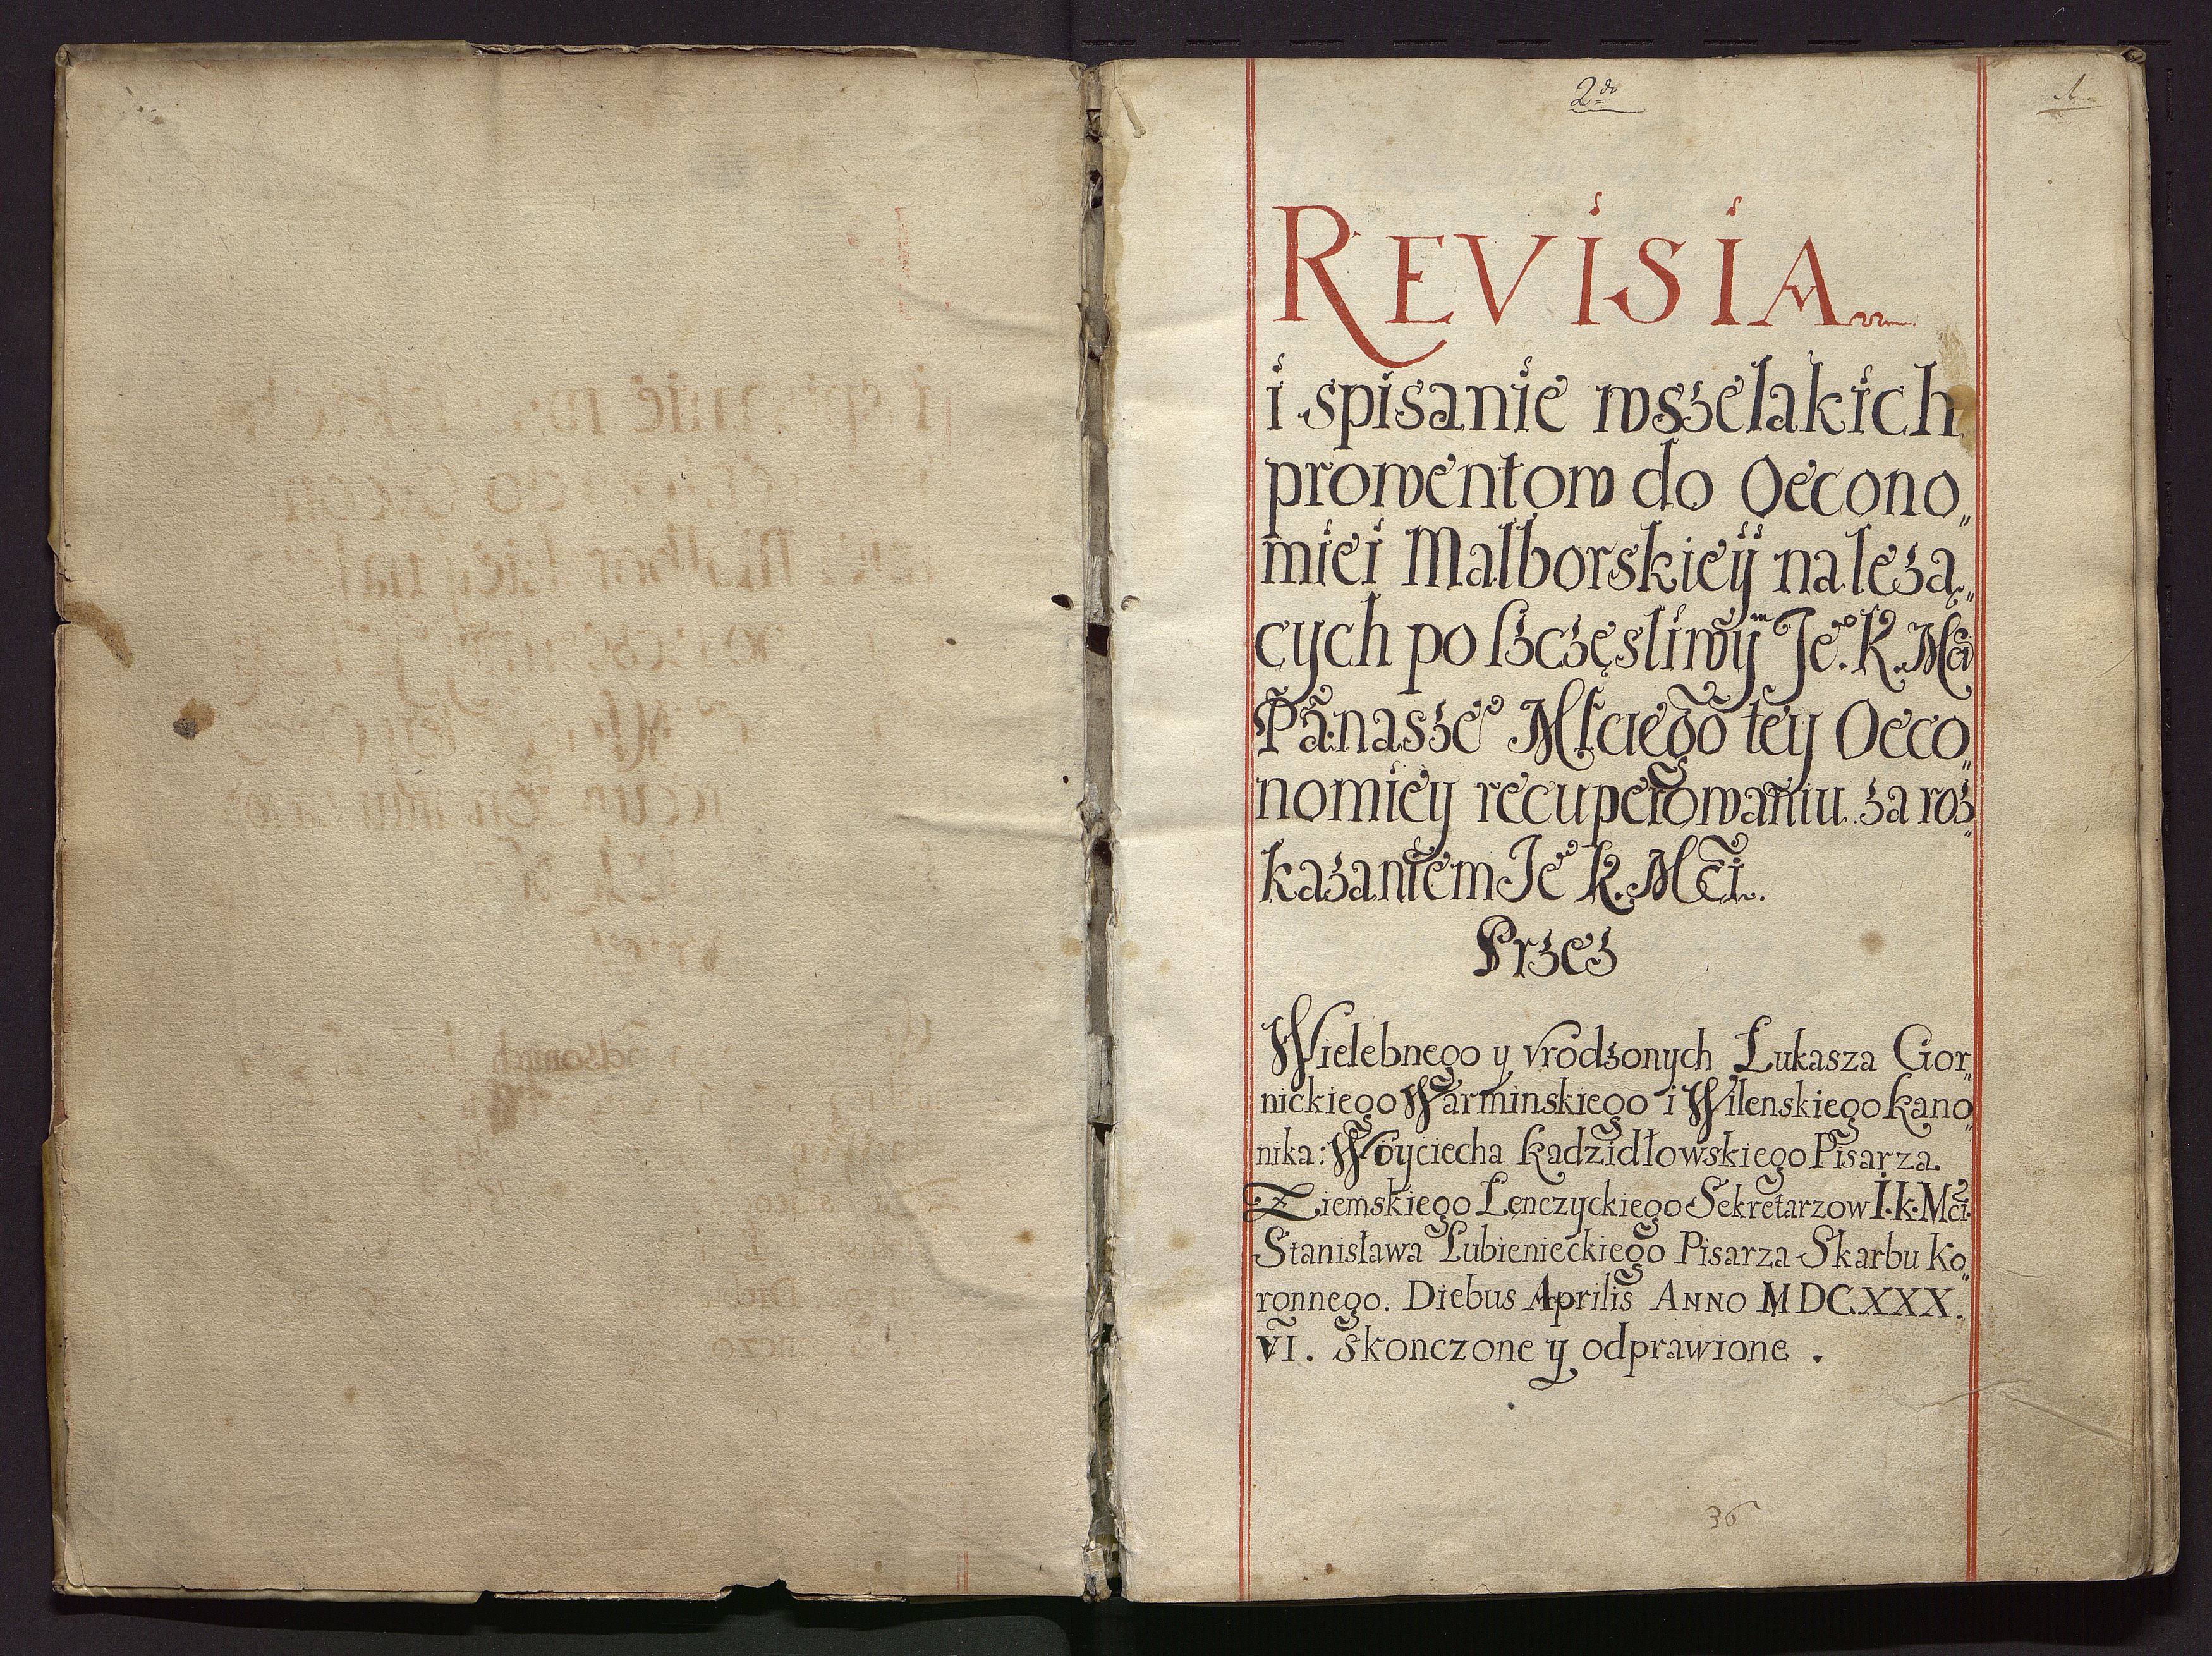 2do
1
REVISIA
i spisanie wszelakich
prowentow do Oecono„
miei Malborskieÿ nalezą„
cych po szczęsliwÿm Jeo. K. Mci
Pãnaszeo Msciego teÿ Oeco„
nomieÿ recuperowaniu za roz„
kazaniem Jeo K. Mci.
Przez
Wielebnego y Vrodzonych Lukasza Gor„
nickiego Warminskiego i Wilenskiego Kano„
nika: Woyciecha Kadzidłowskiego Pisarza
Ziemskiego Lęnczyckiego Sekretarzow I.K.Mci.
Stanisława Lubienieckiego Pisarza Skarbu Ko„
ronnego. Diebus Aprilis ANNO MDCXXX.
VI. skonczone y odprawione .
36